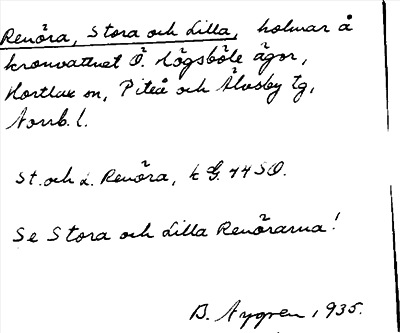 Renöra, Stora och Lilla, holmar å
kronvattnet Ö. Högsböle ägor,
Hortlax sn, Piteå och Älvsby tg,
Norrb. l.
St. och L. Renöra, k G. 44 SO.
Se Stora och Lilla Renörarna!
B. Nygren, 1935.